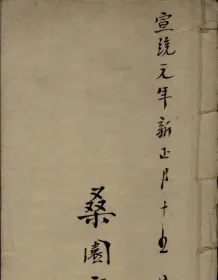 宣統元年新正月十五日
桑園